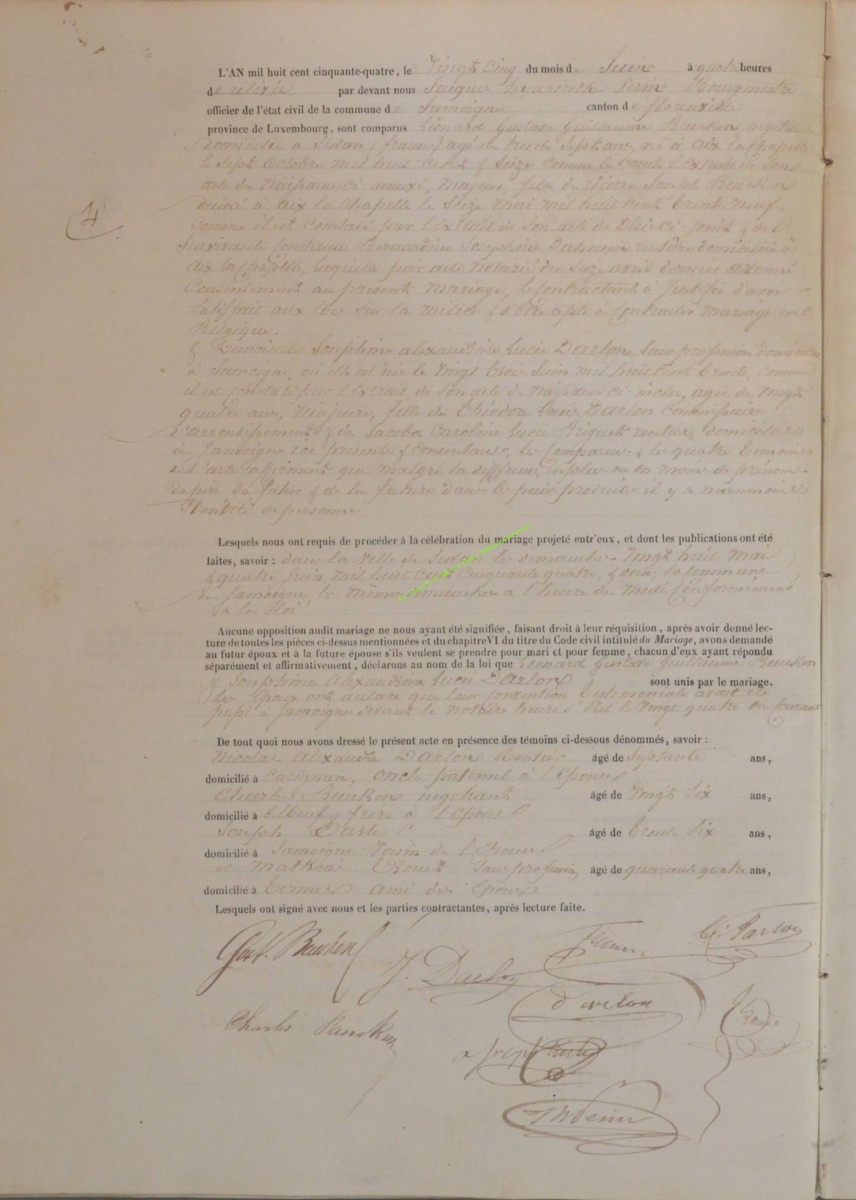 L'AN mil huit cent cinquante-quatre, le Vingt Cinq du mois de Juin à quatre heures
de relevée par devant nous Jacques hyacinthe Bourgmestre
officier de l'état civil de la commune de Jamoigne canton de florenville
province de Luxembourg, sont comparus Léonard Gustave Guillaume Beucken négotiant
domicilié à Sedan (france) agé de trente Sept ans, né à aix la chapelle
le Sept Octobre mil huit Cent & Seize Comme le Constate l'Extrait de Son
acte de Naissance ci annexé, Majeur, fils de Pierre Joseph Beucken
décédé à aix la Chapelle le Seize Mai mil huit Cent trente neuf
Comme il est Constaté par l'Extrait de Son acte de Décès ci joint & de
4
Survivante Bernardine Josephine rentière domiciliée à
aix la Chapelle, laquelle par acte Notarié du Seize avril dernier a donné
Consentement au present Mariage, le Contractant a Justifié d'avoir
Satisfait aux lois Sur la milice & d'être apte à Contracter Mariage en
Belgique.
& Demoiselle Josephine alexandrine Lucie Darlon, Sans profession domiciliée
à Jamoigne, où elle est née le Vingt trois Juin mil huit Cent trente, Comme
il est Constaté par l'Extrait de Son acte de Naissance ci inclus, agée de Vingt
quatre ans, Majeure, fille de Théodore Louis Darlon Commissaire
d'arrondissement & de Jacoba Caroline Lucie Briquet rentiers domiciliés
à Jamoigne ici présents & Consentans, les Comparus & les quatre temoins
à l'acte affirment que malgré la différence ou en moins de prénoms
du père du futur & de la future dans les pieces produites il y a néanmoins
Identité de personne
Lesquels nous ont requis de procéder à la célébration du mariage projeté entr'eux, et dont les publications ont été
faites, savoir : dans la Ville de Sedan les dimanches Vingt huit Mai
& quatre Juin mil huit Cent Cinquante quatre, & dans la Commune
de Jamoigne les mêmes dimanches à l'heure de midi Conformément
à la loi
Aucune opposition audit mariage ne nous ayant été signifiée, faisant droit à leur réquisition, après avoir donné lec-
ture de toutes les pièces ci-dessus mentionnées et du chapitre VI du titre du Code civil intitulé du Mariage, avons demandé
au futur époux et à la future épouse s'ils veulent se prendre pour mari et pour femme, chacun d'eux ayant répondu
séparément et affirmativement, déclarons au nom de la loi que Léonard Gustave Guillaume Beucken
& Josephine Alexandrine Lucie Darlon sont unis par le mariage.
Les Epoux ont déclaré que leur Convention avait été
passé à Jamoigne devant le notaire le Vingt quatre du Courant
De tout quoi nous avons dressé le présent acte en présence des témoins ci-dessous dénommés, savoir :
Nicolas Alexandre Darlon rentier âgé de Septante ans,
domicilié à Carignan, oncle paternel à l'épouse
Charles Beucken négotiant âgé de Vingt Six ans,
domicilié à Elbeuf, frère à l'époux
Joseph âgé de trente Six ans,
domicilié à Jamoigne Voisin de l'Epouse
et Mathieu Sans profession, âgé de quarante quatre ans,
domicilié à Termes ami des Epoux
Lesquels ont signé avec nous et les parties contractantes, après lecture faite.
Gust. Beucken
J. Darlon
Darlon
Charles Beucken